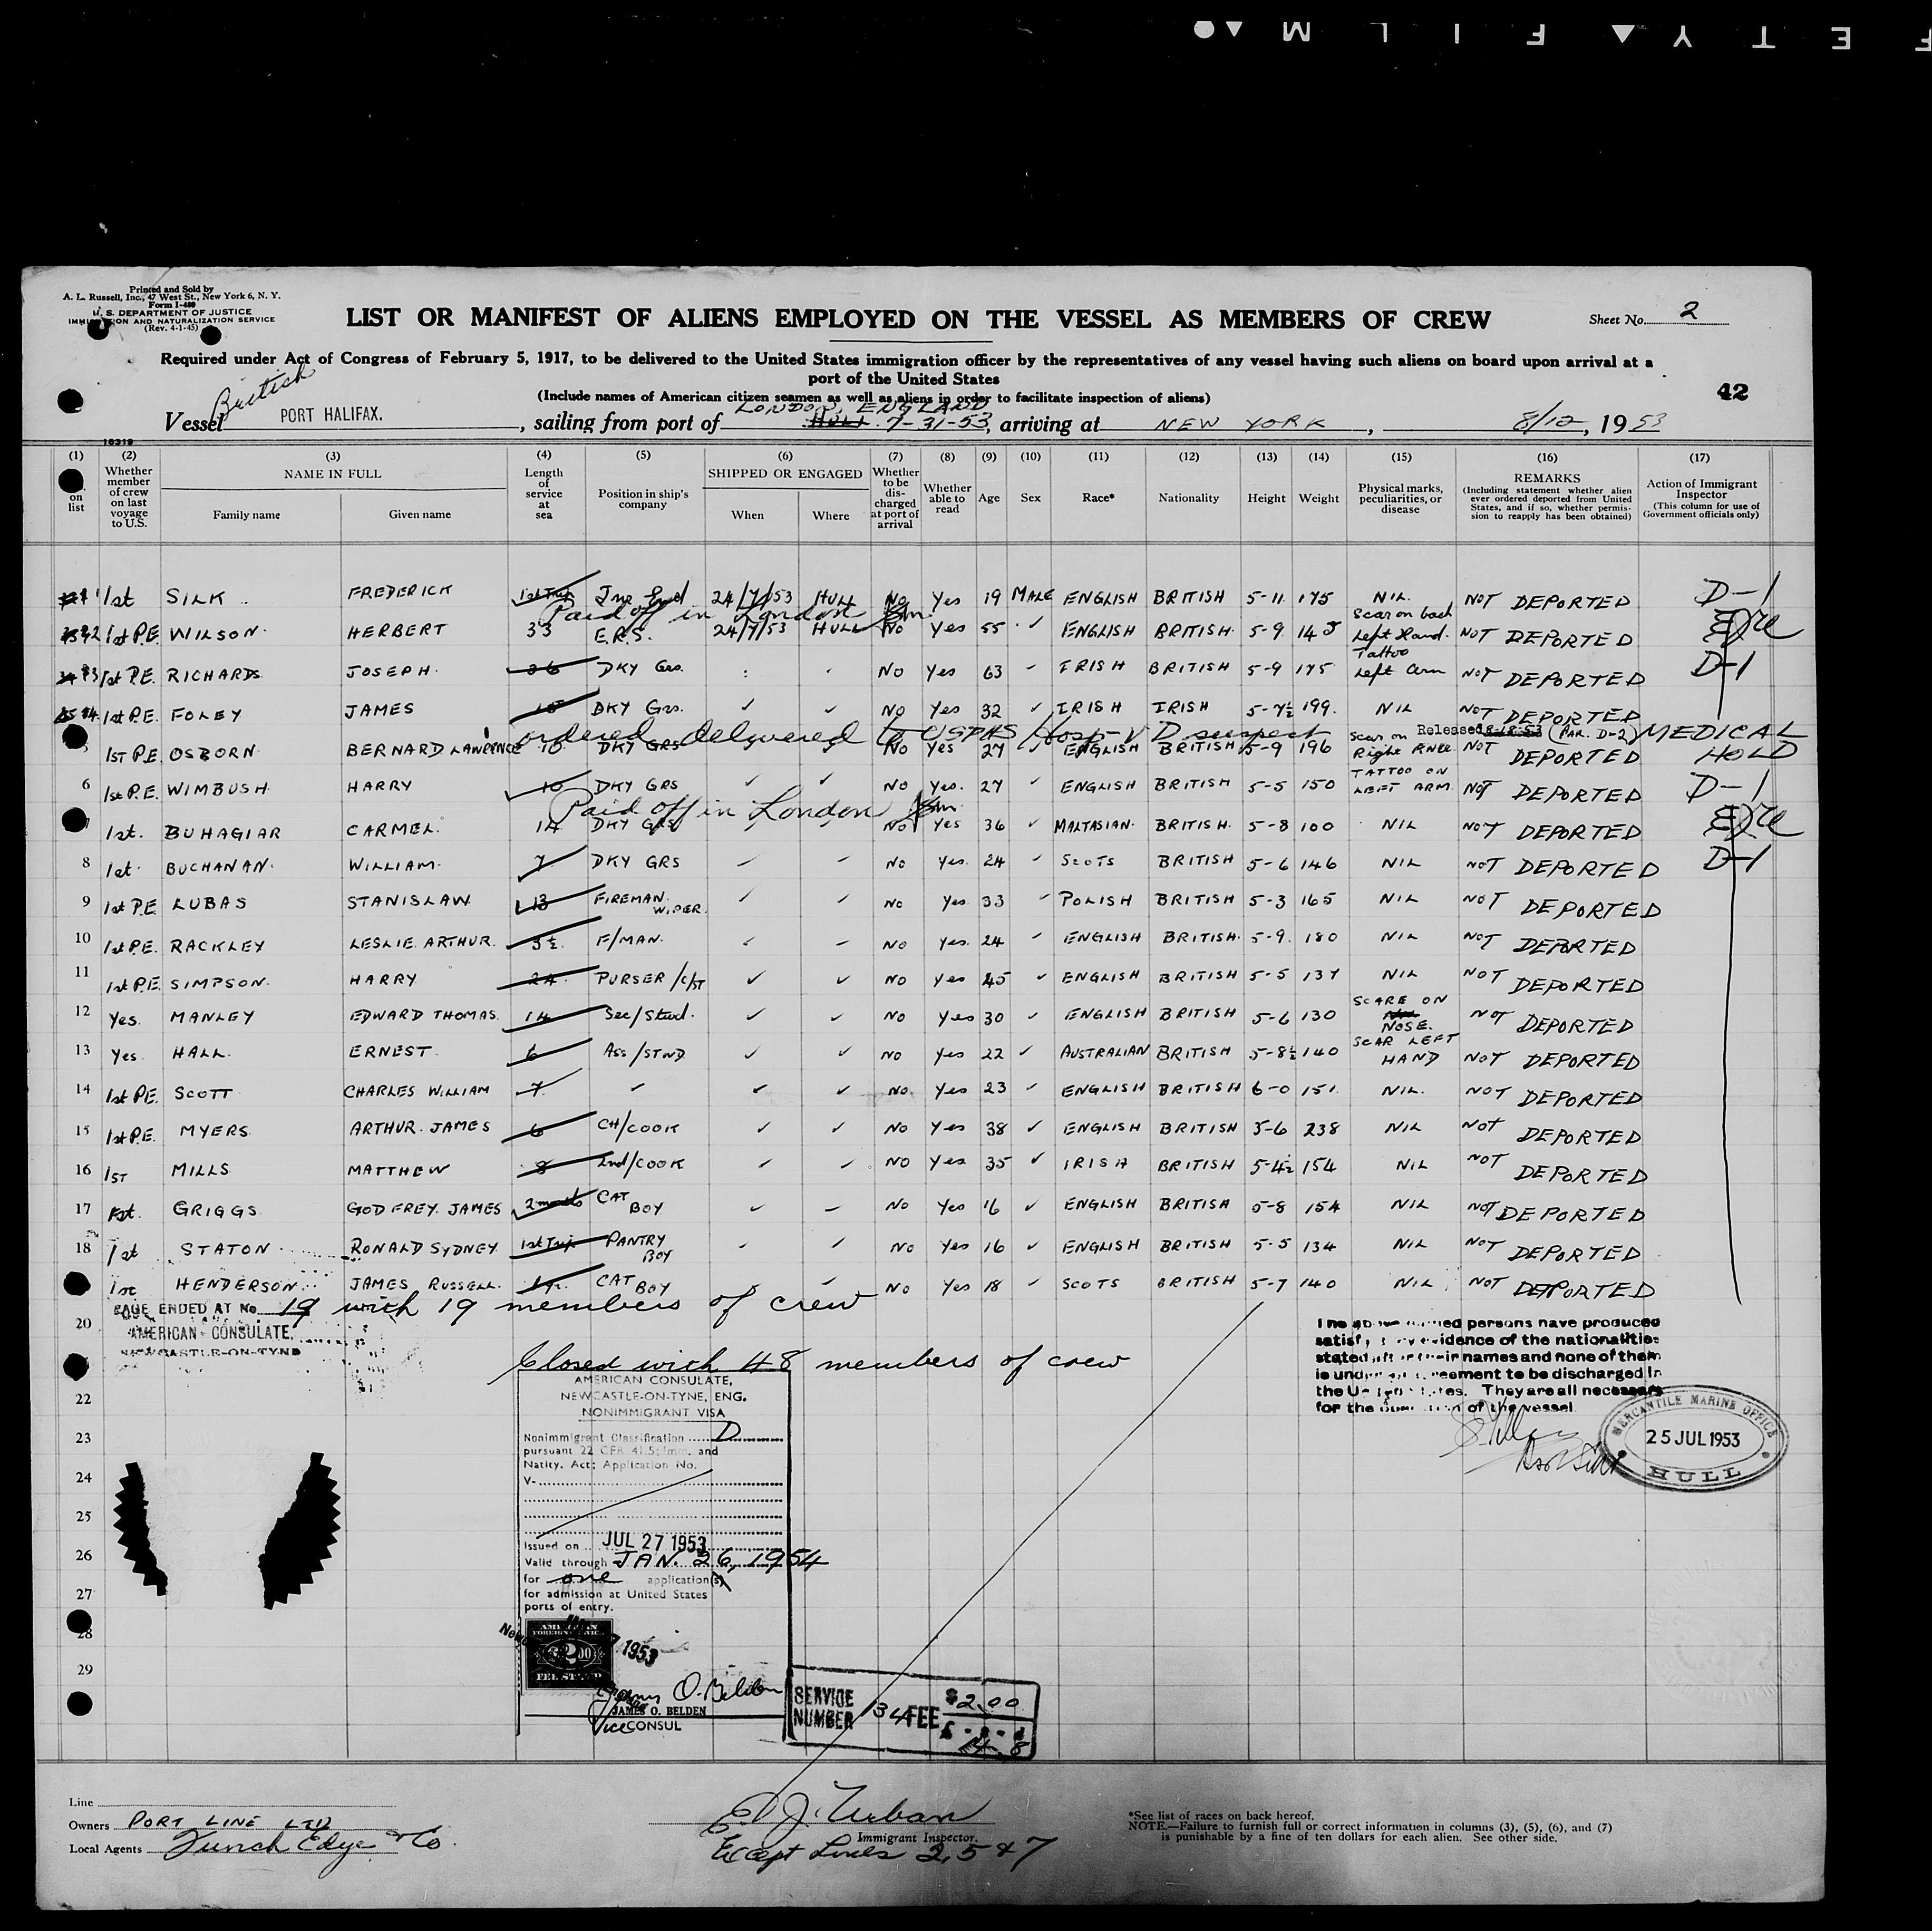 F E T Y ▲ F I L M ▲●
Printed and Sold by
A. L. Russell, Inc., 47 West St., New York 6, N. Y.
Form I-480
U. S. DEPARTMENT OF JUSTICE
IMMIGRATION AND NATURALIZATION SERVICE
(Rev. 4-1-45)
LIST OR MANIFEST OF ALIENS EMPLOYED ON THE VESSEL AS MEMBERS OF CREW
Sheet No. 2
Required under Act of Congress of February 5, 1917, to be delivered to the United States immigration officer by the representatives of any vessel having such aliens on board upon arrival at a
port of the United States
(Include names of American citizen seamen as well as aliens in order to facilitate inspection of aliens)
42
British
LONDON, ENGLAND
Vessel PORT HALIFAX. , sailing from port of HULL 7-31-53, arriving at NEW YORK , 8/12, 1953
16319
(1) (2) (3) (4) (5) (6) (7) (8) (9) (10) (11) (12) (13) (14) (15) (16) (17)
on list
Whether member of crew on last voyage to U.S.
NAME IN FULL
Family name Given name
Length of service at sea
Position in ship's company
SHIPPED OR ENGAGED
When Where
Whether to be discharged at port of arrival
Whether able to read
Age Sex Race* Nationality Height Weight
Physical marks, peculiarities, or disease
REMARKS
(Including statement whether alien ever ordered deported from United States, and if so, whether permission to reapply has been obtained)
Action of Immigrant Inspector
(This column for use of Government officials only)
1 1st SILK FREDERICK 1st Trip 24/7/53 HULL No Yes 19 MALE ENGLISH BRITISH 5-11 175 NIL. NOT DEPORTED D-1
Paid off in London
2 1st P.E. WILSON HERBERT 33 E.R.S. 24/7/53 HULL No Yes 55 ✓ ENGLISH BRITISH 5-9 145 Scar on back Left Hand. NOT DEPORTED
3 1st P.E. RICHARDS JOSEPH. 36 DKY Grs. No Yes 63 IRISH BRITISH 5-9 175 Tattoo Left Arm NOT DEPORTED D-1
4 1st P.E. FOLEY JAMES DKY Grs. ✓ ✓ No Yes 32 ✓ IRISH IRISH 5-7½ 199. NIL NOT DEPORTED
ordered delivered to USPHS Hosp - VD suspect Released 8-18-53 (PAR. D-2) MEDICAL HOLD
1ST P.E OSBORN BERNARD LAWRENCE 10 DKY GRS No Yes 27 ENGLISH BRITISH 5-9 196 Scar on Right Knee NOT DEPORTED
6 1st P.E. WIMBUSH. HARRY 10 DKY GRS ✓ ✓ No Yes. 27 ✓ ENGLISH BRITISH 5-5 150 TATTOO ON LEFT ARM. NOT DEPORTED D-1
Paid off in London
1st. BUHAGIAR CARMEL. 14 DKY GRS No Yes 36 ✓ MALTASIAN. BRITISH. 5-8 100 NIL NOT DEPORTED
8 1st. BUCHANAN. WILLIAM. 7 DKY GRS No Yes. 24 SCOTS BRITISH 5-6 146 NIL NOT DEPORTED D-1
9 1st P.E LUBAS STANISLAW 13 FIREMAN. WIPER. ✓ ✓ No Yes 33 ✓ POLISH BRITISH 5-3 165 NIL NOT DEPORTED
10 1st P.E. RACKLEY LESLIE. ARTHUR. 3½. F/MAN. No Yes. 24 ENGLISH BRITISH. 5-9. 180 NIL NOT DEPORTED
11 1st P.E. SIMPSON. HARRY 24 PURSER /C/ST ✓ ✓ No Yes 45 ✓ ENGLISH BRITISH 5-5 137 NIL NOT DEPORTED
12 Yes. MANLEY EDWARD THOMAS. 14 Sec/Stwd. ✓ ✓ No Yes 30 ENGLISH BRITISH 5-6 130 SCARE ON NOSE. NOT DEPORTED
13 Yes. HALL. ERNEST. 6 Ass/STWD ✓ ✓ No Yes 22 ✓ AUSTRALIAN BRITISH 5-8½ 140 SCAR LEFT HAND NOT DEPORTED
14 1st P.E. SCOTT CHARLES WILLIAM 7 ✓ ✓ ✓ No. Yes 23 ✓ ENGLISH BRITISH 6-0 151. NIL. NOT DEPORTED
15 1st P.E. MYERS ARTHUR. JAMES 6 CH/COOK ✓ ✓ No Yes 38 ✓ ENGLISH BRITISH 5-6 238 NIL NOT DEPORTED
16 1ST MILLS MATTHEW 8 2nd/COOK ✓ ✓ NO Yes 35 ✓ IRISH BRITISH 5-4½ 154 NIL NOT DEPORTED
17 1st. GRIGGS GODFREY. JAMES 2 months CAT BOY ✓ No Yes 16 ✓ ENGLISH BRITISH 5-8 154 NIL NOT DEPORTED
18 1st STATON RONALD SYDNEY 1st Trip PANTRY BOY ✓ ✓ No Yes 16 ✓ ENGLISH BRITISH 5-5 134 NIL NOT DEPORTED
1st HENDERSON JAMES RUSSELL. CAT BOY No Yes 18 SCOTS BRITISH 5-7 140 NIL NOT DEPORTED
PAGE ENDED AT No. 19 with 19 members of crew
20 AMERICAN CONSULATE,
NEWCASTLE-ON-TYNE
The above named persons have produced
satisfactory evidence of the nationalities
stated after their names and none of them
is under agreement to be discharged in
the United States. They are all necessary
for the operation of the vessel
Closed with 48 members of crew
22
23
24
25
26
27
28
29
AMERICAN CONSULATE,
NEWCASTLE-ON-TYNE, ENG.
NONIMMIGRANT VISA
Nonimmigrant Classification D
pursuant 22 CFR 41.5; Imm. and
Natity. Act; Application No.
V-
Issued on JUL 27 1953
Valid through JAN. 26, 1954
for one application(s)
for admission at United States
ports of entry.
MERCANTILE MARINE OFFICE
25 JUL 1953
HULL
1953
James O. Belden
JAMES O. BELDEN
Vice CONSUL
SERVICE NUMBER 134 FEE $2.00
Line
Owners PORT LINE LTD
Local Agents Funch Edye & Co.
E. J. Urban
Immigrant Inspector.
Except Lines 2, 5 & 7
*See list of races on back hereof.
NOTE.—Failure to furnish full or correct information in columns (3), (5), (6), and (7)
is punishable by a fine of ten dollars for each alien. See other side.